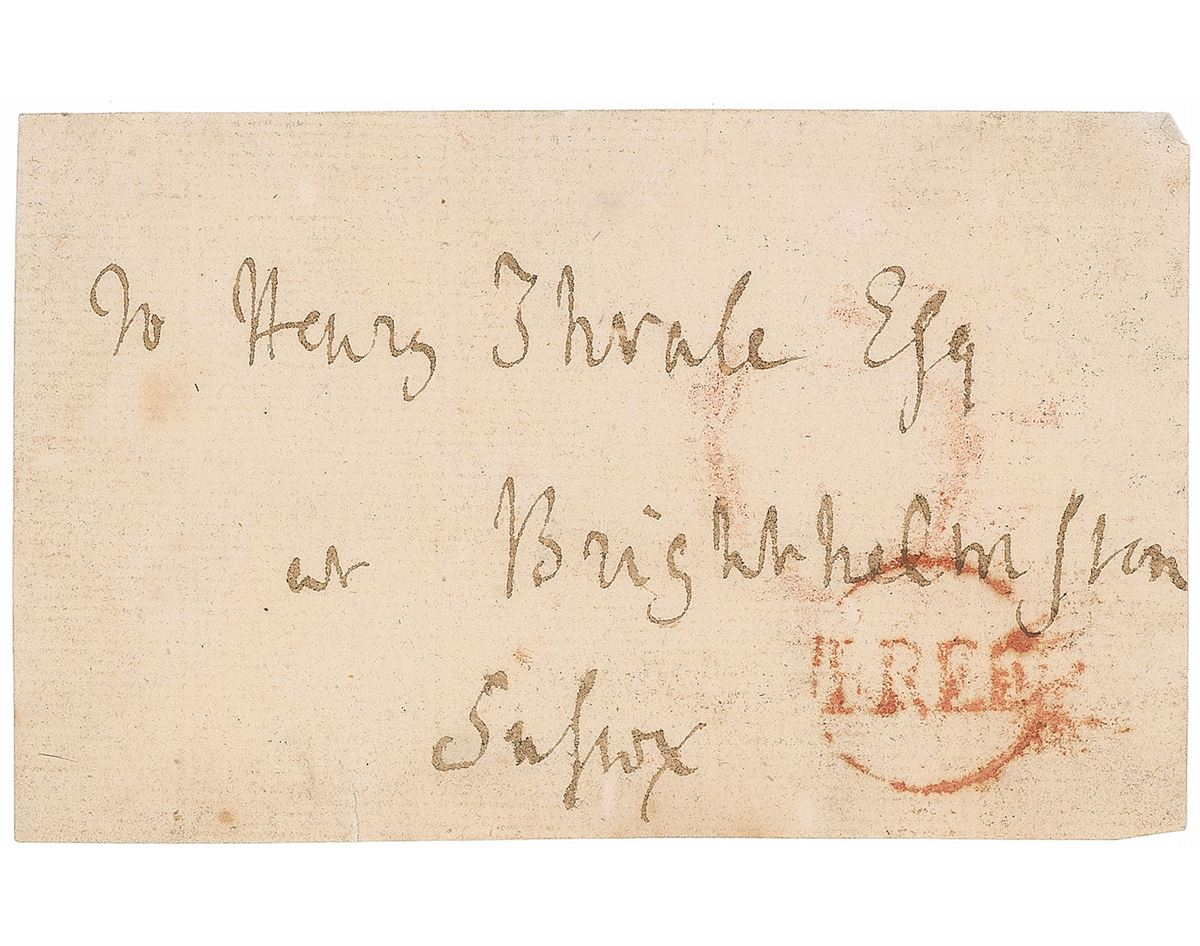 To Henry Thrale Esq
at Brighthelmſton
Suſſex
FREE